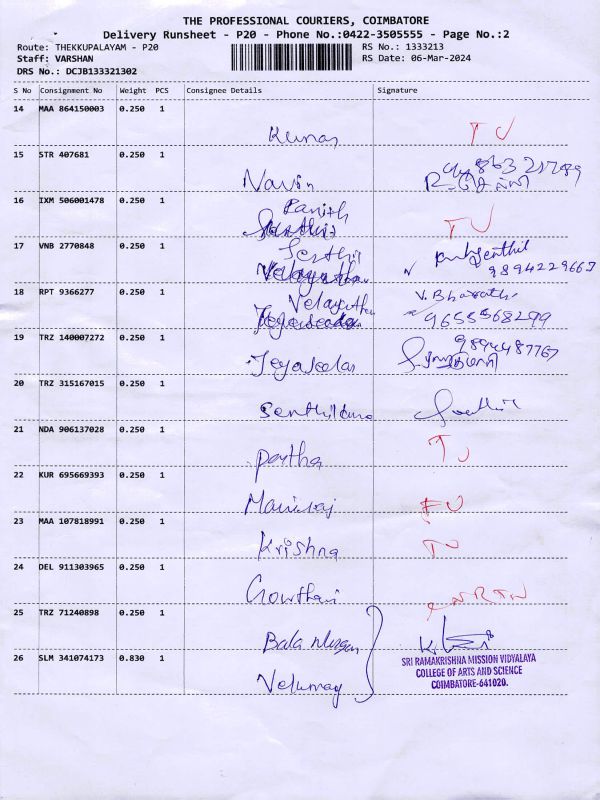 THE PROFESSIONAL COURIERS, COIMBATORE
Delivery Runsheet - P20 - Phone No.:0422-3505555 - Page No.:2
Route: THEKKUPALAYAM - P20
Staff: VARSHAN
DRS No.: DCJB133321302
RS No.: 1333213
RS Date: 06-Mar-2024
S No Consignment No Weight PCS Consignee Details Signature
14 MAA 864150003 0.250 1
Kumar TU
15 STR 407681 0.250 1
Navin
16 IXM 506001478 0.250 1
Ranjith
TU
17 VNB 2770848 0.250 1
Senthil Senthil
9894229667
18 RPT 9366277 0.250 1
Velayutha V. Bharathi
9655568299
19 TRZ 140007272 0.250 1
9894487767
Jeyaseelan
20 TRZ 315167015 0.250 1
Senthilkuma
21 NDA 906137028 0.250 1
Partha TU
22 KUR 695669393 0.250 1
Maniraj
23 MAA 107818991 0.250 1
Krishna TU
24 DEL 911303965 0.250 1
Gowtham RTN
25 TRZ 71240898 0.250 1
Bala Murgan
26 SLM 341074173 0.830 1
Velumay
SRI RAMAKRISHNA MISSION VIDYALAYA
COLLEGE OF ARTS AND SCIENCE
COIMBATORE-641020.